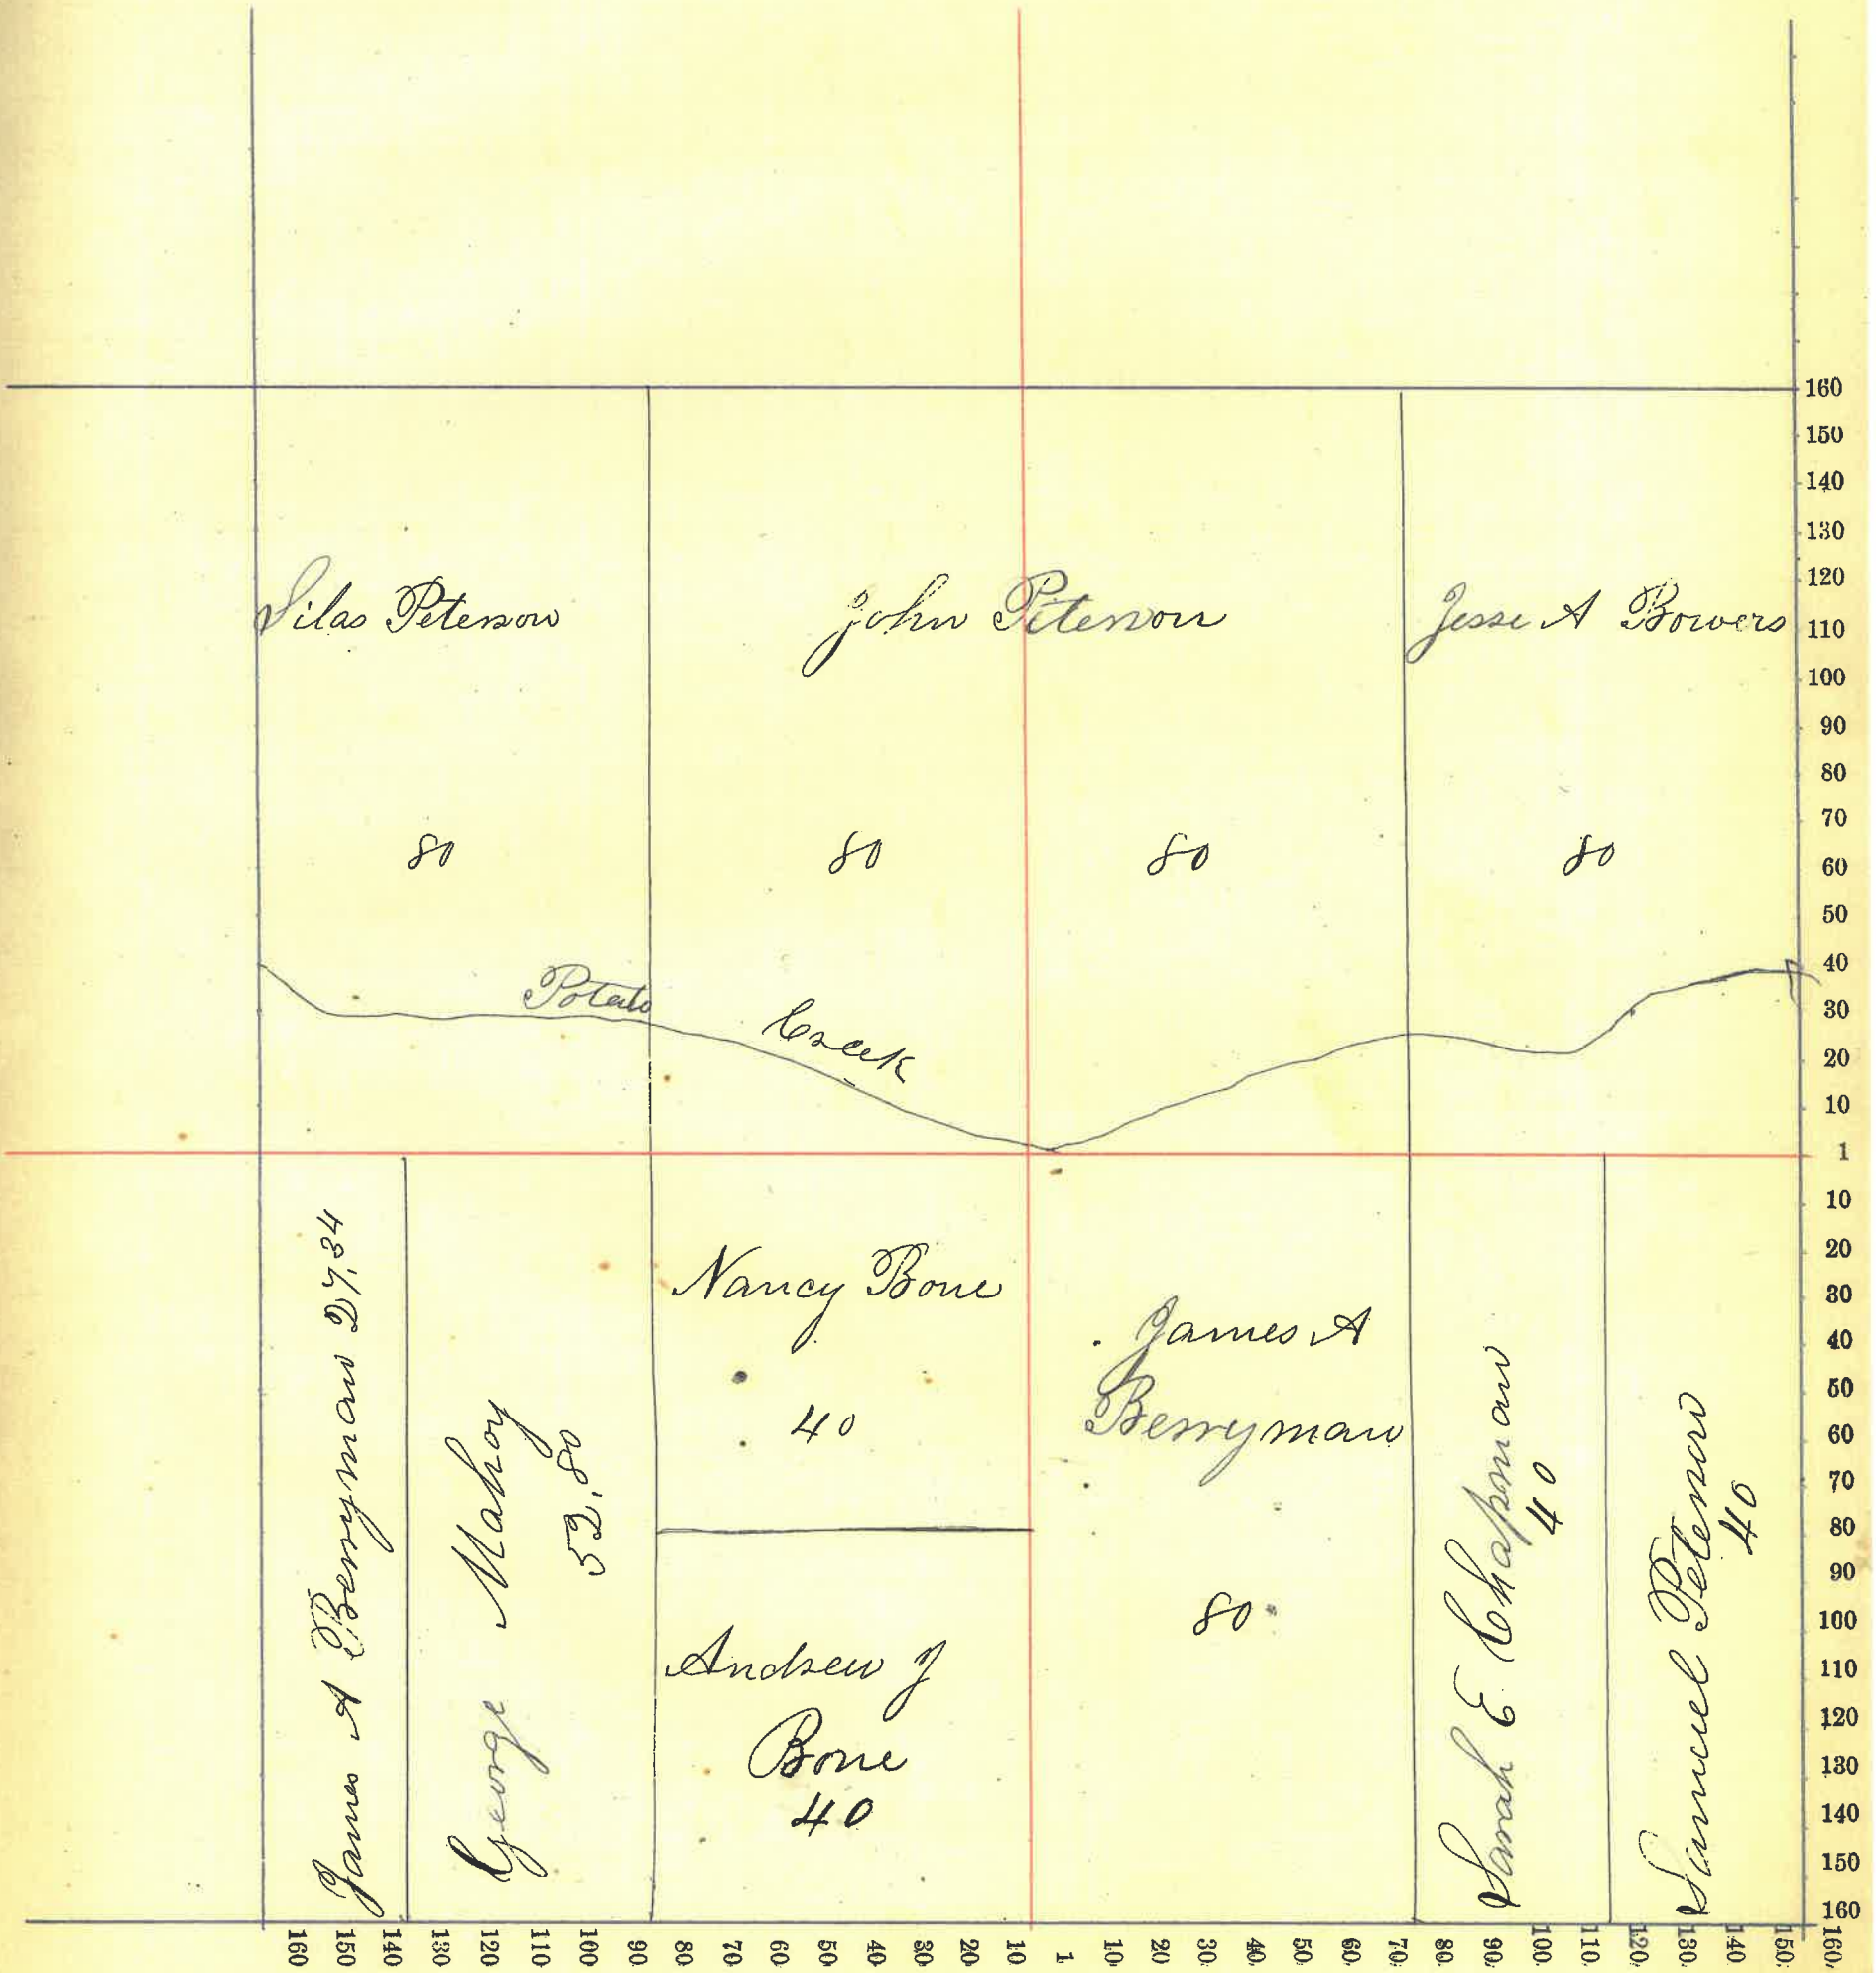 Silas Peterson
John Peterson
Jesse A Bowers
80
80
80
80
Potato
Creek
James A Berryman 27,34
George Mahoy
52,80
Nancy Bone
40
Andrew J
Bone
40
James A
Berryman
80
Sarah E Chapman
40
Samuel Peterson
40
160
150
140
130
120
110
100
90
80
70
60
50
40
30
20
10
1
10
20
30
40
50
60
70
80
90
100
110
120
130
140
150
160
160 150 140 130 120 110 100 90 80 70 60 50 40 30 20 10 1 10 20 30 40 50 60 70 80 90 100 110 120 130 140 150 160